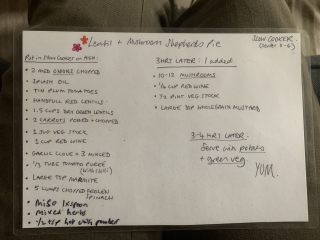 Lentil + Mushroom Shepherds Pie
SLOW COOKER
Put in Slow Cooker on HIGH:
• 2 RED ONIONS CHOPPED
• SPLASH OIL
• TIN PLUM TOMATOES
• HANDFULL RED LENTILS
• 1.5 CUPS DRY GREEN LENTILS
• 2 CARROTS PEELED + CHOPPED
• 1 JUG VEG STOCK
• 1 CUP RED WINE
• GARLIC CLOVE × 3 MINCED
• 1/3 TUBE TOMATO PUREE
• LARGE TBSP MARMITE
• 5 LUMPS CHOPPED FROZEN
SPINACH
• MISO 1xspoon
• Mixed herbs
• 1/2 tsp hot chilli powder
3HRS LATER: I added
• 10-12 MUSHROOMS
• 1/4 CUP RED WINE
• 1/2 PINT VEG STOCK
• LARGE TBSP WHOLEGRAIN MUSTARD
3-4HRS LATER:
Serve with potato
+ green veg
YUM.